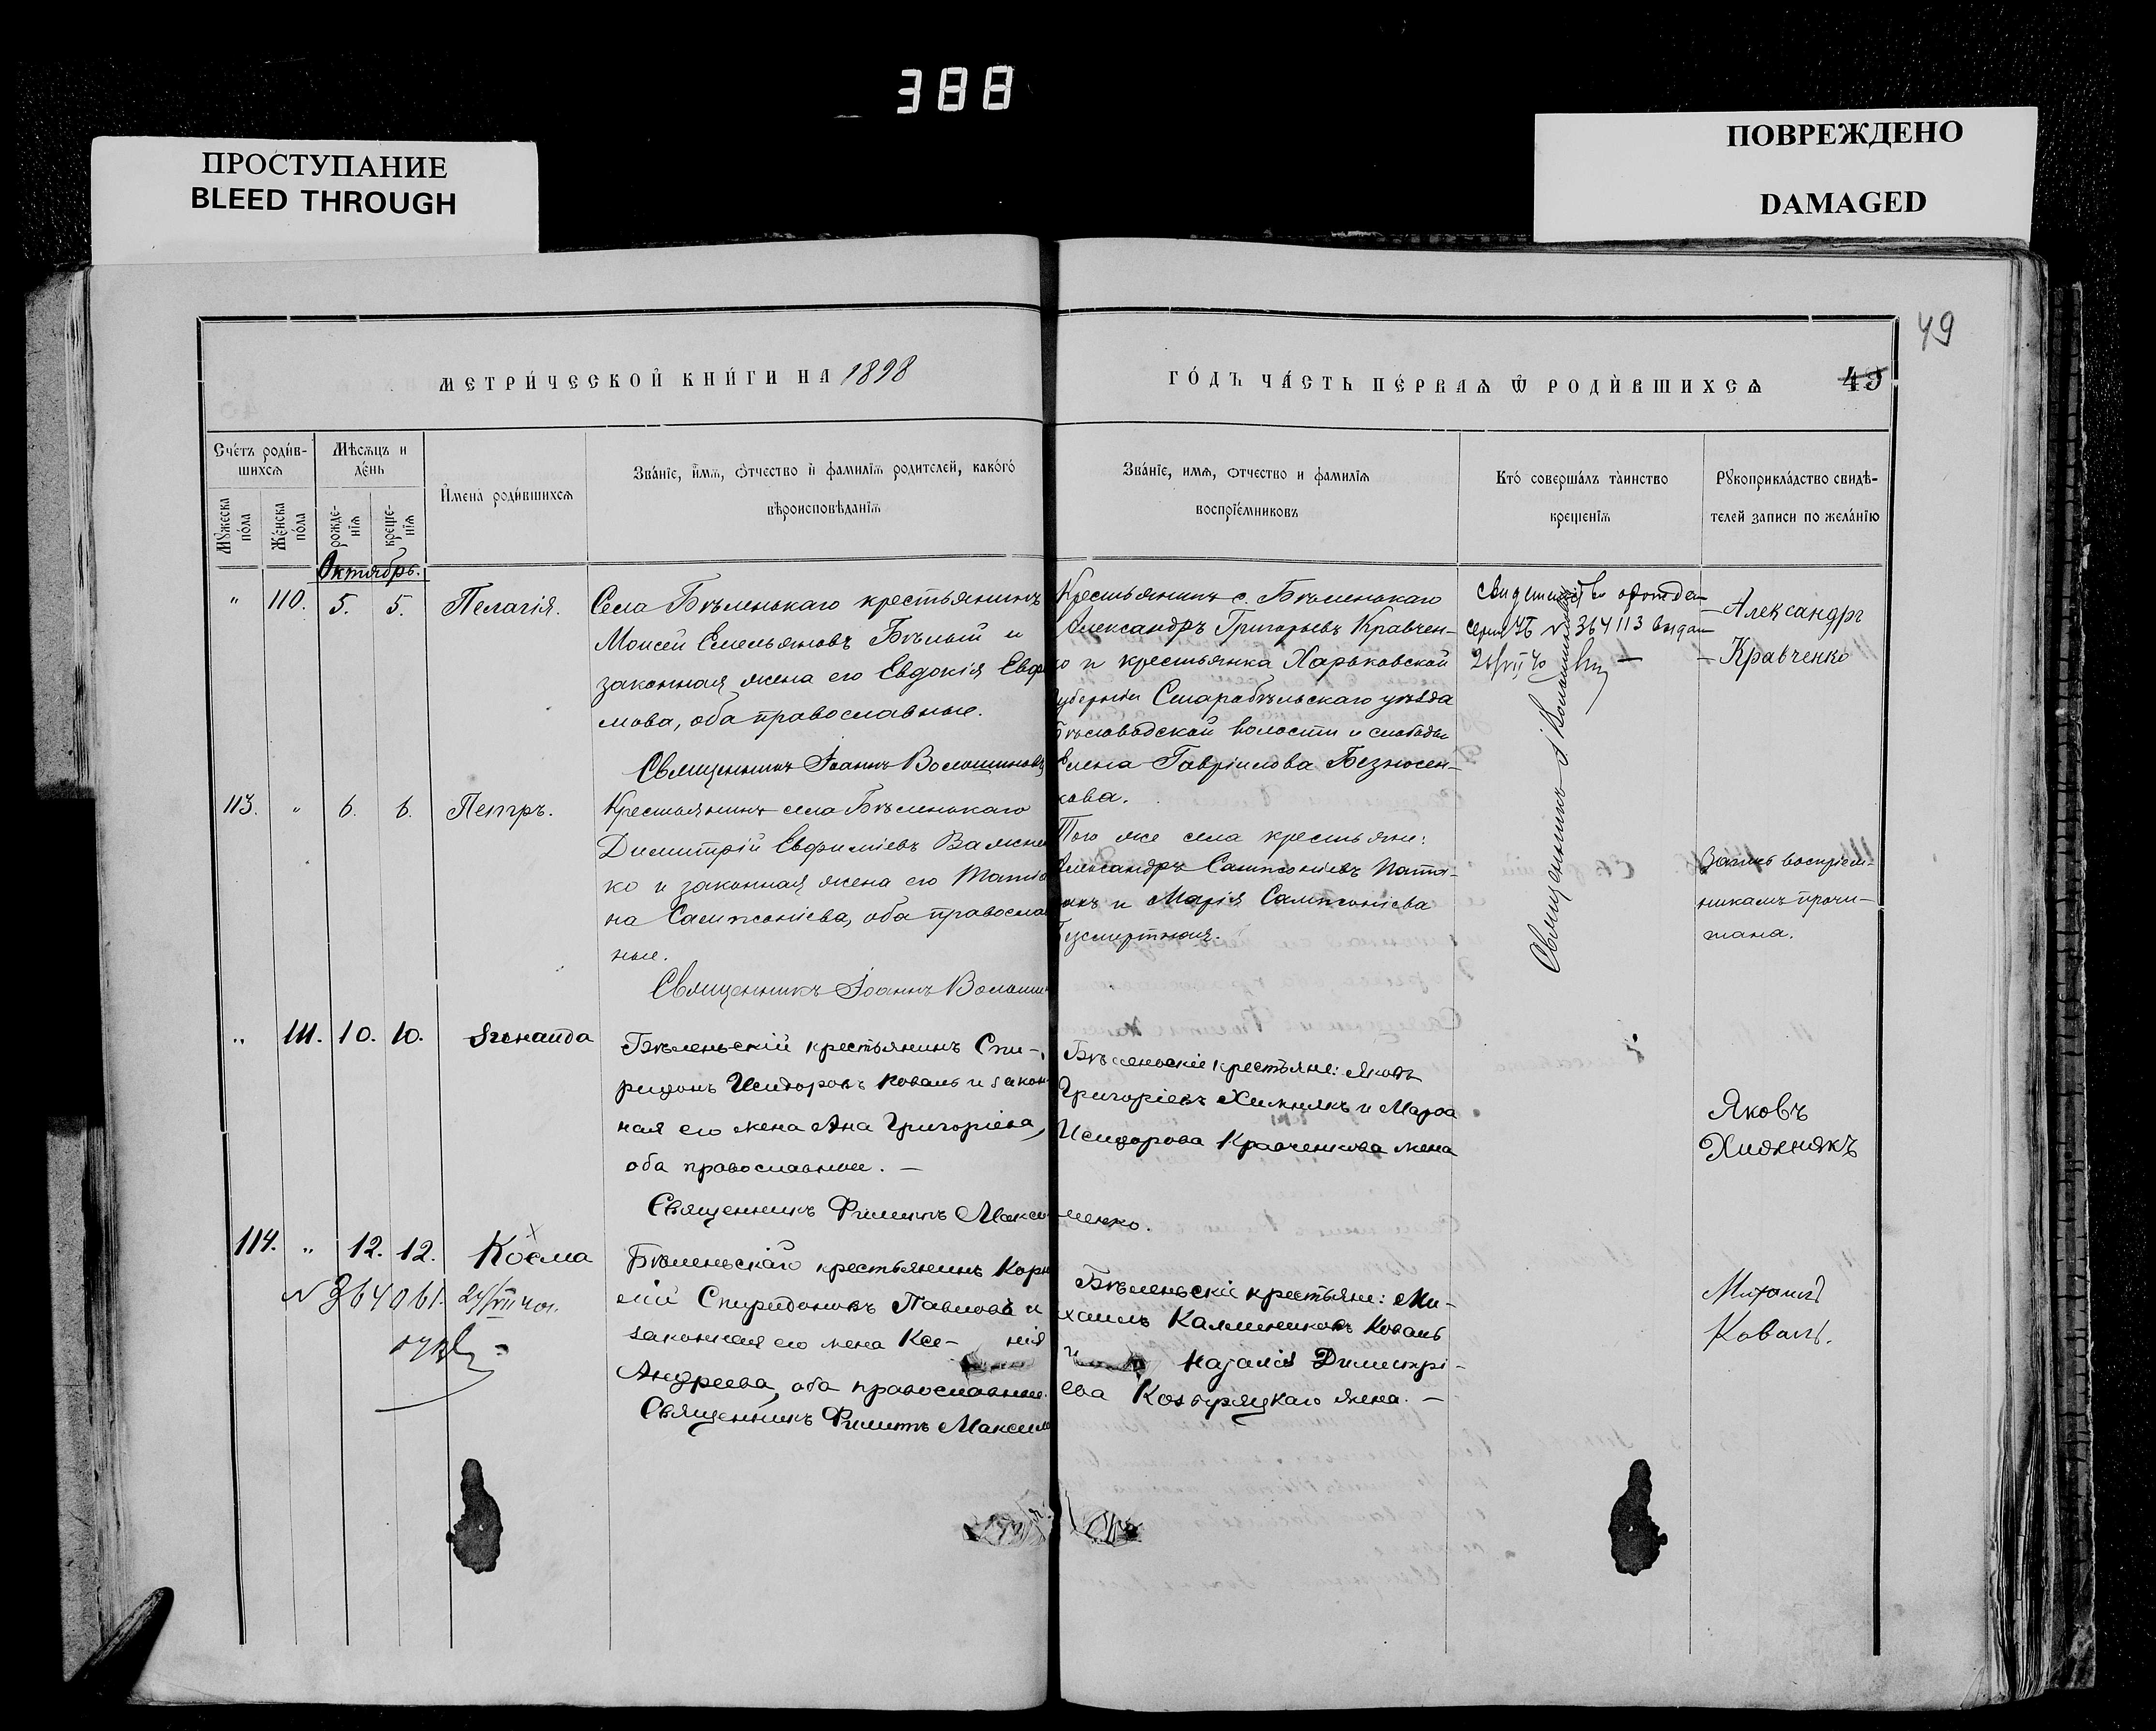 388
ПРОСТУПАНИЕ
BLEED THROUGH
ПОВРЕЖДЕНО
DAMAGED
49
МЕТРИ́ЧЕСКОЙ КНИ́ГИ НА 1898
ГО́ДЪ ЧА́СТЬ ПЕ́РВАѦ Ѿ РОДИ́ВШИХСѦ
Сче́тъ роди́в-
шихсѧ
Му́жеска
по́ла
Же́нска
по́ла
Мѣ́сѧцъ и
де́нь
рожде-
нїѧ
креще-
нїѧ
И҆мена̀ роди́вшихсѧ
Зва́нїе, и҆́мѧ, ѻ҆́тчество и҆ фамилїѧ родителей, како́гѡ
вѣроисповѣданїѧ
Зва́нїе, имѧ, ѻтчество и фамилїѧ
воспрїе́мниковъ
Кто́ соверша́лъ та̀инство
креще́нїѧ
Рꙋкоприкла́дство свидѣ-
телей записи по жела́нїю
Октябрь.
" 110. 5. 5. Пелагія.
Села Бѣленькаго крестьянинъ
Моисей Емельяновъ Бѣлый и
законная жена его Евдокія Евфи
мова, оба православные.
Священникъ Іоаннъ Волошиновъ
Крестьянинъ с. Бѣленькаго
Александръ Григорьевъ Кравчен-
ко и крестьянка Харьковской
губерніи Старобѣльскаго уѣзда
Бѣловодской волости и слободы
Елена Гавріилова Безносен-
кова.
364113
Священникъ І Волошиновъ
Александръ
Кравченко
113. " 6. 6. Петръ.
Крестьянинъ села Бѣленькаго
Димитрій Евфиміевъ
ко и законная жена его Татiа
на Сампсоніева, оба православ
ные.
Священникъ Іоаннъ Волоши
Того же села крестьяне:
Александръ Сампсоніевъ
и Марія Сампсоніева
Безсмертная.
Запись воспріем-
никамъ прочи-
тана.
" 111. 10. 10. Зинаида
Бѣленьскій крестьянинъ Спи-
ридонъ Исидоровъ Коваль и закон
ная его жена Ана Григоріева,
оба православные. —
Священникъ Филиппъ Макси
менко.
Бѣленьскіе крестьяне: Яковъ
Григоріевъ Хижнякъ и Марфа
Исидорова Кравченкова жена
Яковъ
Хижнякъ
114. " 12. 12. Косма
№ 364061. 24/VII 40г.
Бѣленьскаго крестьянинъ Кор
нілій Спиридоновъ Павлова и
законная его жена Ксе- нія
Андреева, оба православные.
Священникъ Филиппъ Максим
Бѣленьскіе крестьяне: Ми-
хаилъ Калиниковъ Коваль
и Наталія Димитрі-
ева жена. —
Михаилъ
Коваль.